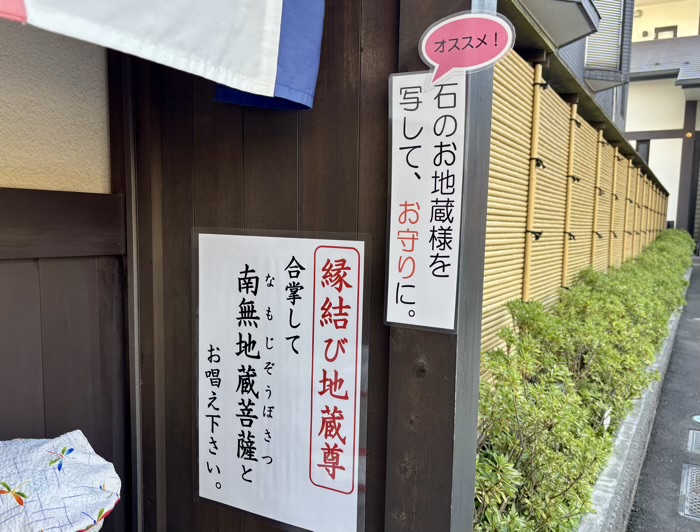 オススメ!
石のお地蔵様を
写して、お守りに。
縁結び地蔵尊
合掌して
なもじぞうぼさつ
南無地蔵菩薩と
お唱え下さい。